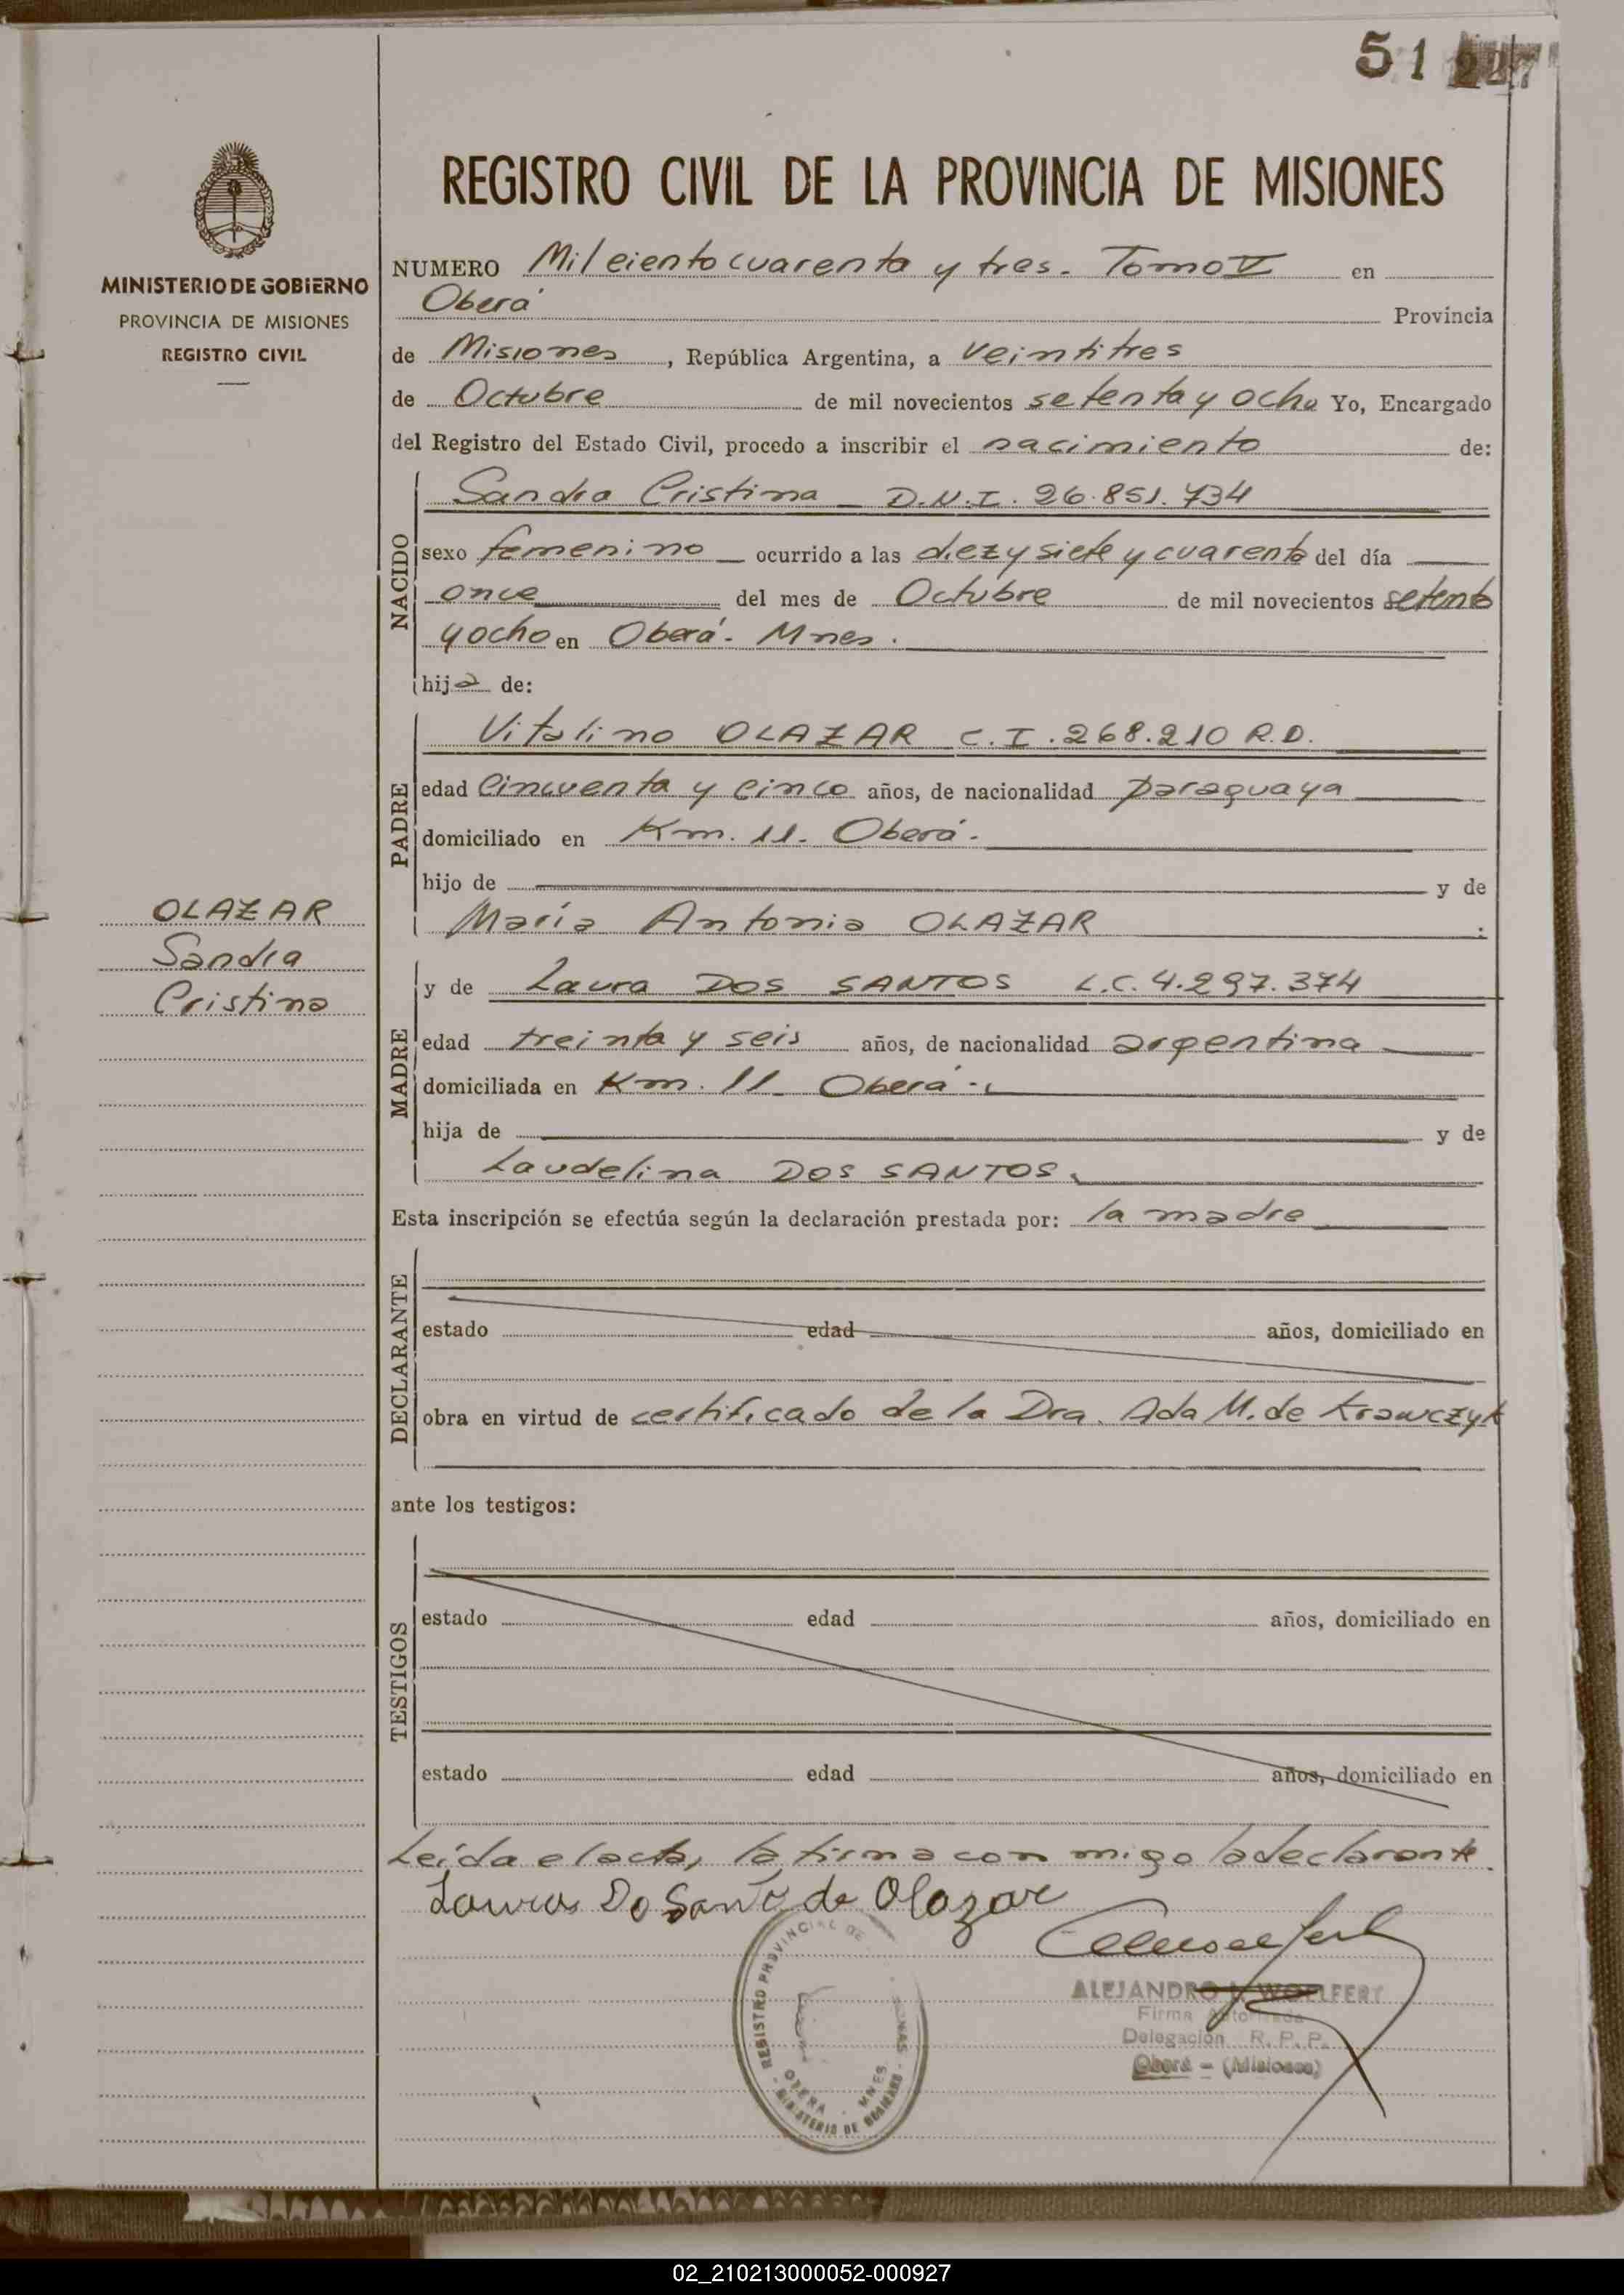 51
MINISTERIO DE GOBIERNO
PROVINCIA DE MISIONES
REGISTRO CIVIL
REGISTRO CIVIL DE LA PROVINCIA DE MISIONES
NUMERO Mil ciento cuarenta y tres. Tomo V en
Oberá Provincia
de Misiones, República Argentina, a veintitres
de Octubre de mil novecientos setenta y ocho Yo, Encargado
del Registro del Estado Civil, procedo a inscribir el nacimiento de:
NACIDO
Sandra Cristina D.N.I. 26.851.734
sexo femenino ocurrido a las diez y siete y cuarenta del día
once del mes de Octubre de mil novecientos setenta
y ocho en Oberá - Mnes.
hija de:
PADRE
Vitalino OLAZAR C.I. 268.210 R.D.
edad Cincuenta y cinco años, de nacionalidad paraguaya
domiciliado en Km. 11. Oberá.
hijo de y de
María Antonia OLAZAR
OLAZAR
Sandra
Cristina
MADRE
y de Laura DOS SANTOS L.C. 4.297.374
edad treinta y seis años, de nacionalidad argentina
domiciliada en Km. 11 Oberá.
hija de y de
Laudelina DOS SANTOS.
Esta inscripción se efectúa según la declaración prestada por: la madre
DECLARANTE
estado edad años, domiciliado en
obra en virtud de certificado de la Dra. Ada M. de Krawczyk
ante los testigos:
TESTIGOS
estado edad años, domiciliado en
estado edad años, domiciliado en
Leída el acta, la firma con migo la declarante.
Laura Do Santo de Olazar
ALEJANDRO WOLFERT
Firma Autorizada
Delegación R. P. P.
Oberá - (Misiones)
REGISTRO PROVINCIAL DE
OBERA - MNES
MINISTERIO DE
02_210213000052-000927